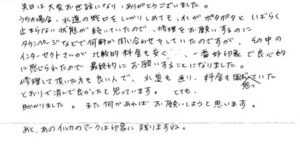 先日は大変お世話になり、ありがとうございました。
うちの場合、水道の蛇口をしっかりしめても、水がポタポタとしばらく
止まらない状態が続いていたので、修理をお願いするのに
タウンページなどで何軒か問い合わせをしていたのですが、その中の
インターセプトさんが比較的料金も安く、一番好印象で良心的
に感じられたので最終的にお願いすることになりました。
修理して頂いた方も良い人で、水質も通り、料金も思っていた
とおりで済んで良かったと思っています。とても、
助かりました。また何かあればお願いしようと思います。
あと、あのイルカのマークは印象に残りますね。